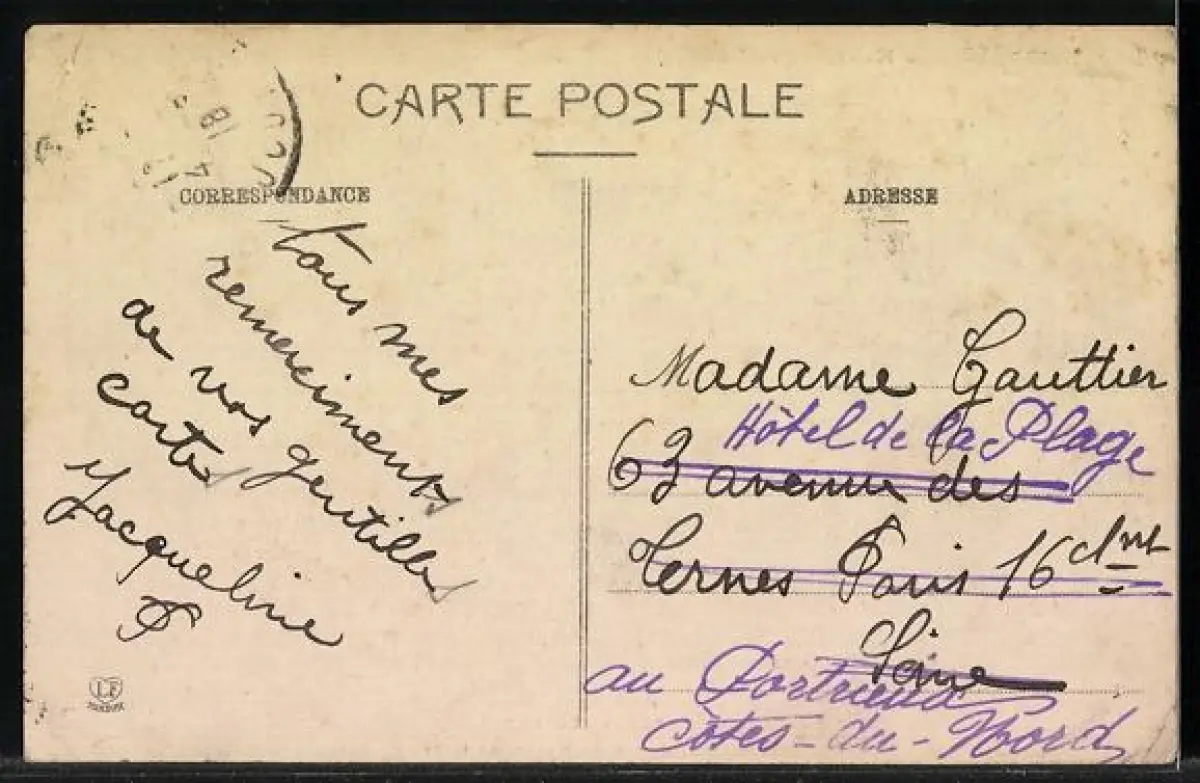 CARTE POSTALE
CORRESPONDANCE
ADRESSE
Tous mes
remerciments
de vos gentilles
cartes
Jacqueline
P
Madame Gauttier
Hôtel de la Plage
63 avenue des
Ternes Paris 16 dmt
Seine
au Portrieux
Côtes-du-Nord
LF